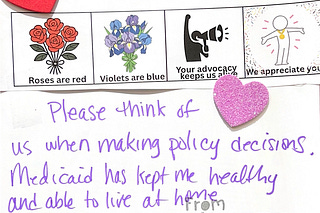 Roses are red
Violets are blue
Your advocacy
keeps us alive
We appreciate you
Please think of
us when making policy decisions.
Medicaid has kept me healthy
and able to live at home
from